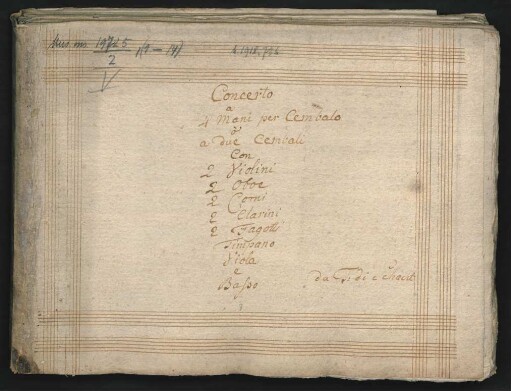 Mus. ms. 19725 / 2 (1-14)
Concerto
a
4 Mani per Cembalo
ò
a Due Cembali
Con
2 Violini
2 Oboe
2 Corni
2 Clarini
2 Fagotti
Timpano
Viola
e
Basso
da